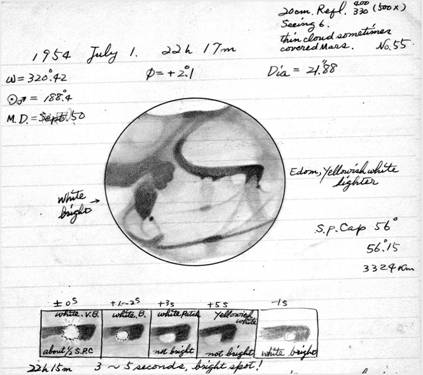 20cm. Refl. 400
330 (500x)
Seeing 6.
thin cloud sometimes
covered Mars. No. 55
1954 July 1. 22h 17m
ω = 320°.42
Φ = +2°.1
Dia = 21".88
☉♂ = 188°.4
M.D. = Sept. 50
White
bright
Edom, Yellowish white
lighter
S.P. Cap 56°
56°.15
332.4 Km
± 0S
+1~2S
+3s
+5S
-1S
white. V.B.
about ½ S.P.C
white. B.
white Patch
not bright
Yellowish
white
not bright
white bright
22h 15m 3 ~ 5 seconds, bright spot!